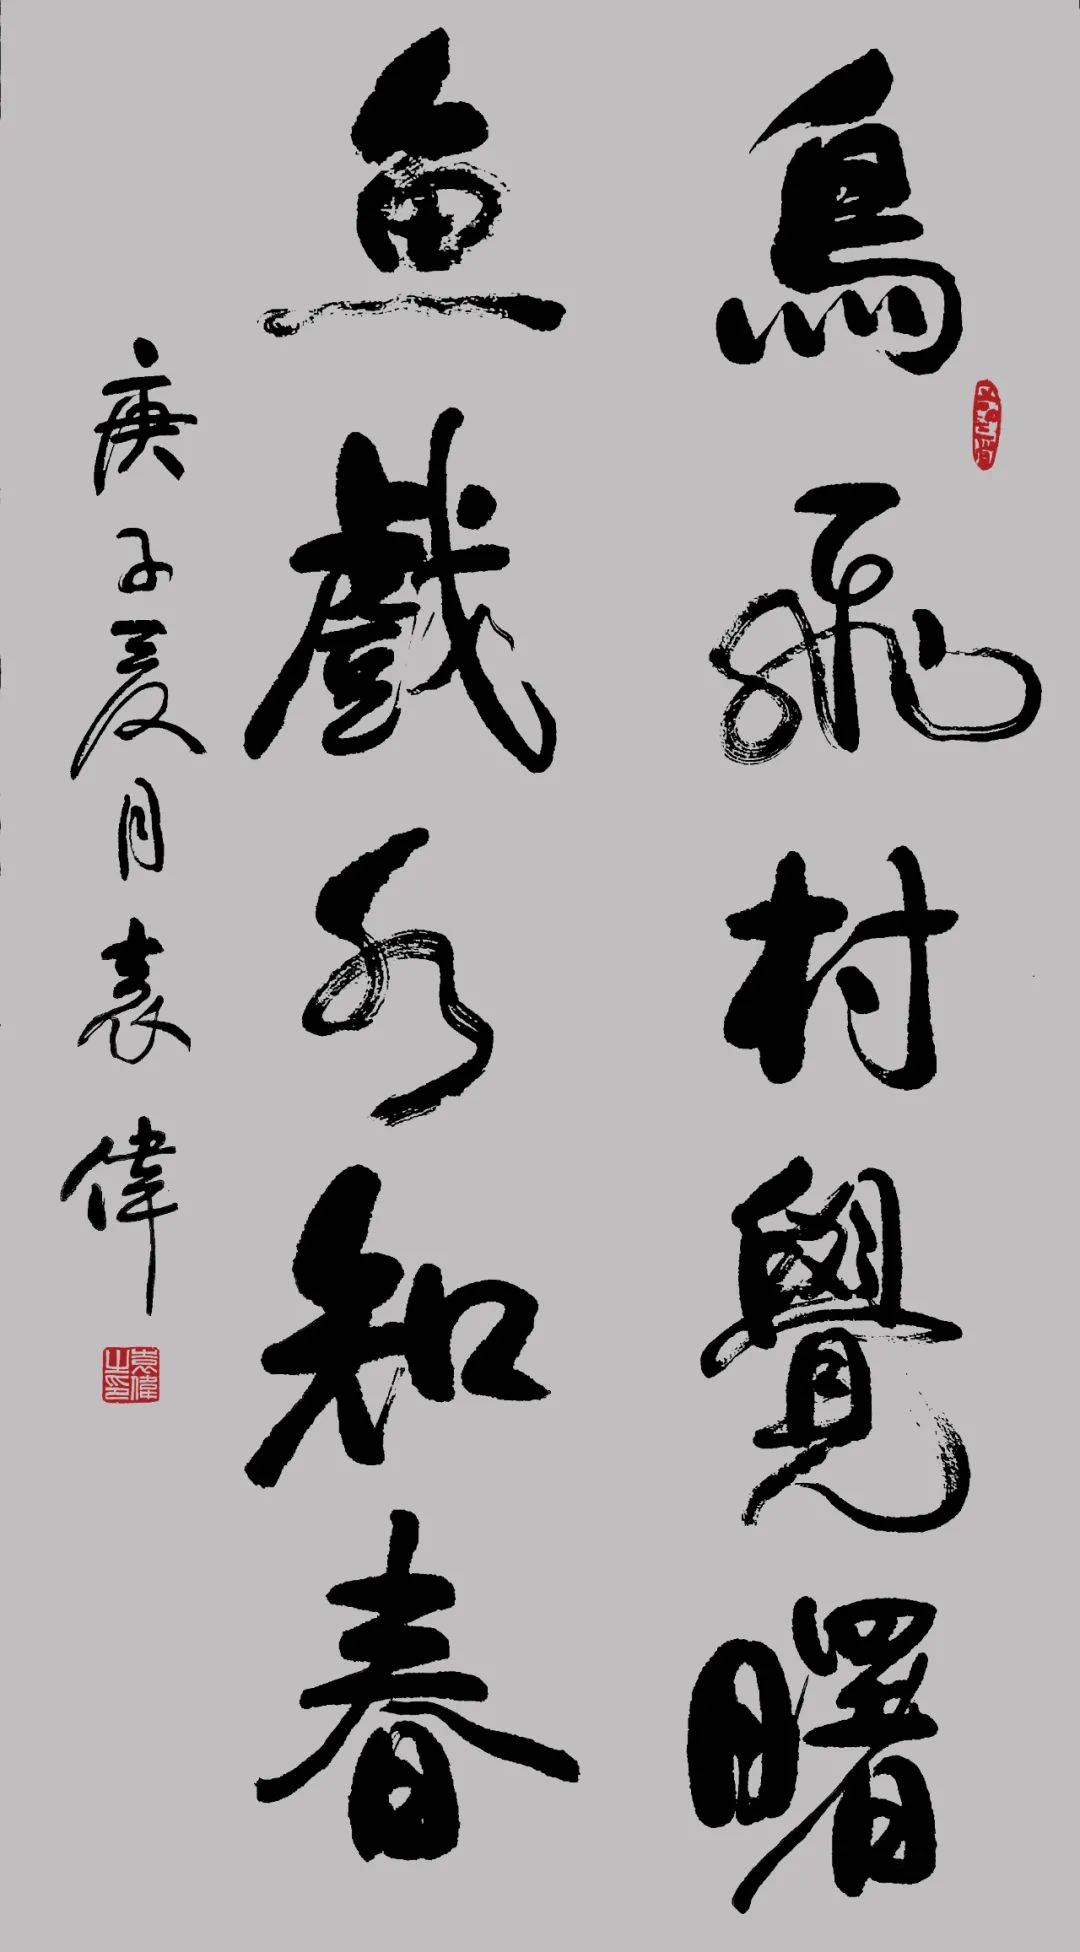 鳥飛村覺曙
魚戲水知春
庚子夏月袁偉
袁偉之印